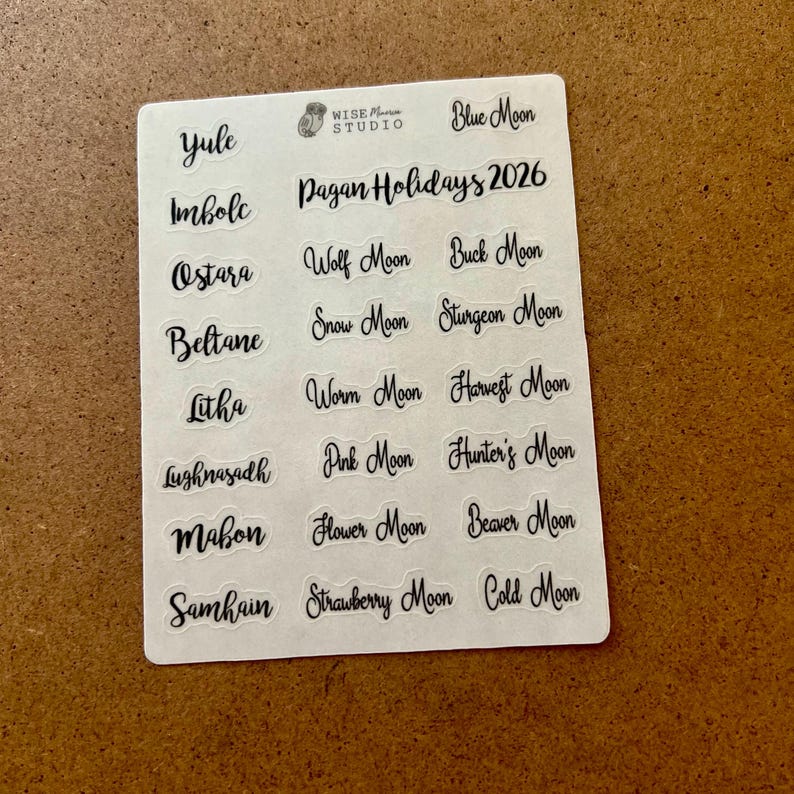 WISE Minerva
STUDIO
Blue Moon
Pagan Holidays 2026
Yule
Imbolc
Ostara
Beltane
Litha
Lughnasadh
Mabon
Samhain
Wolf Moon
Snow Moon
Worm Moon
Pink Moon
Flower Moon
Strawberry Moon
Buck Moon
Sturgeon Moon
Harvest Moon
Hunter's Moon
Beaver Moon
Cold Moon